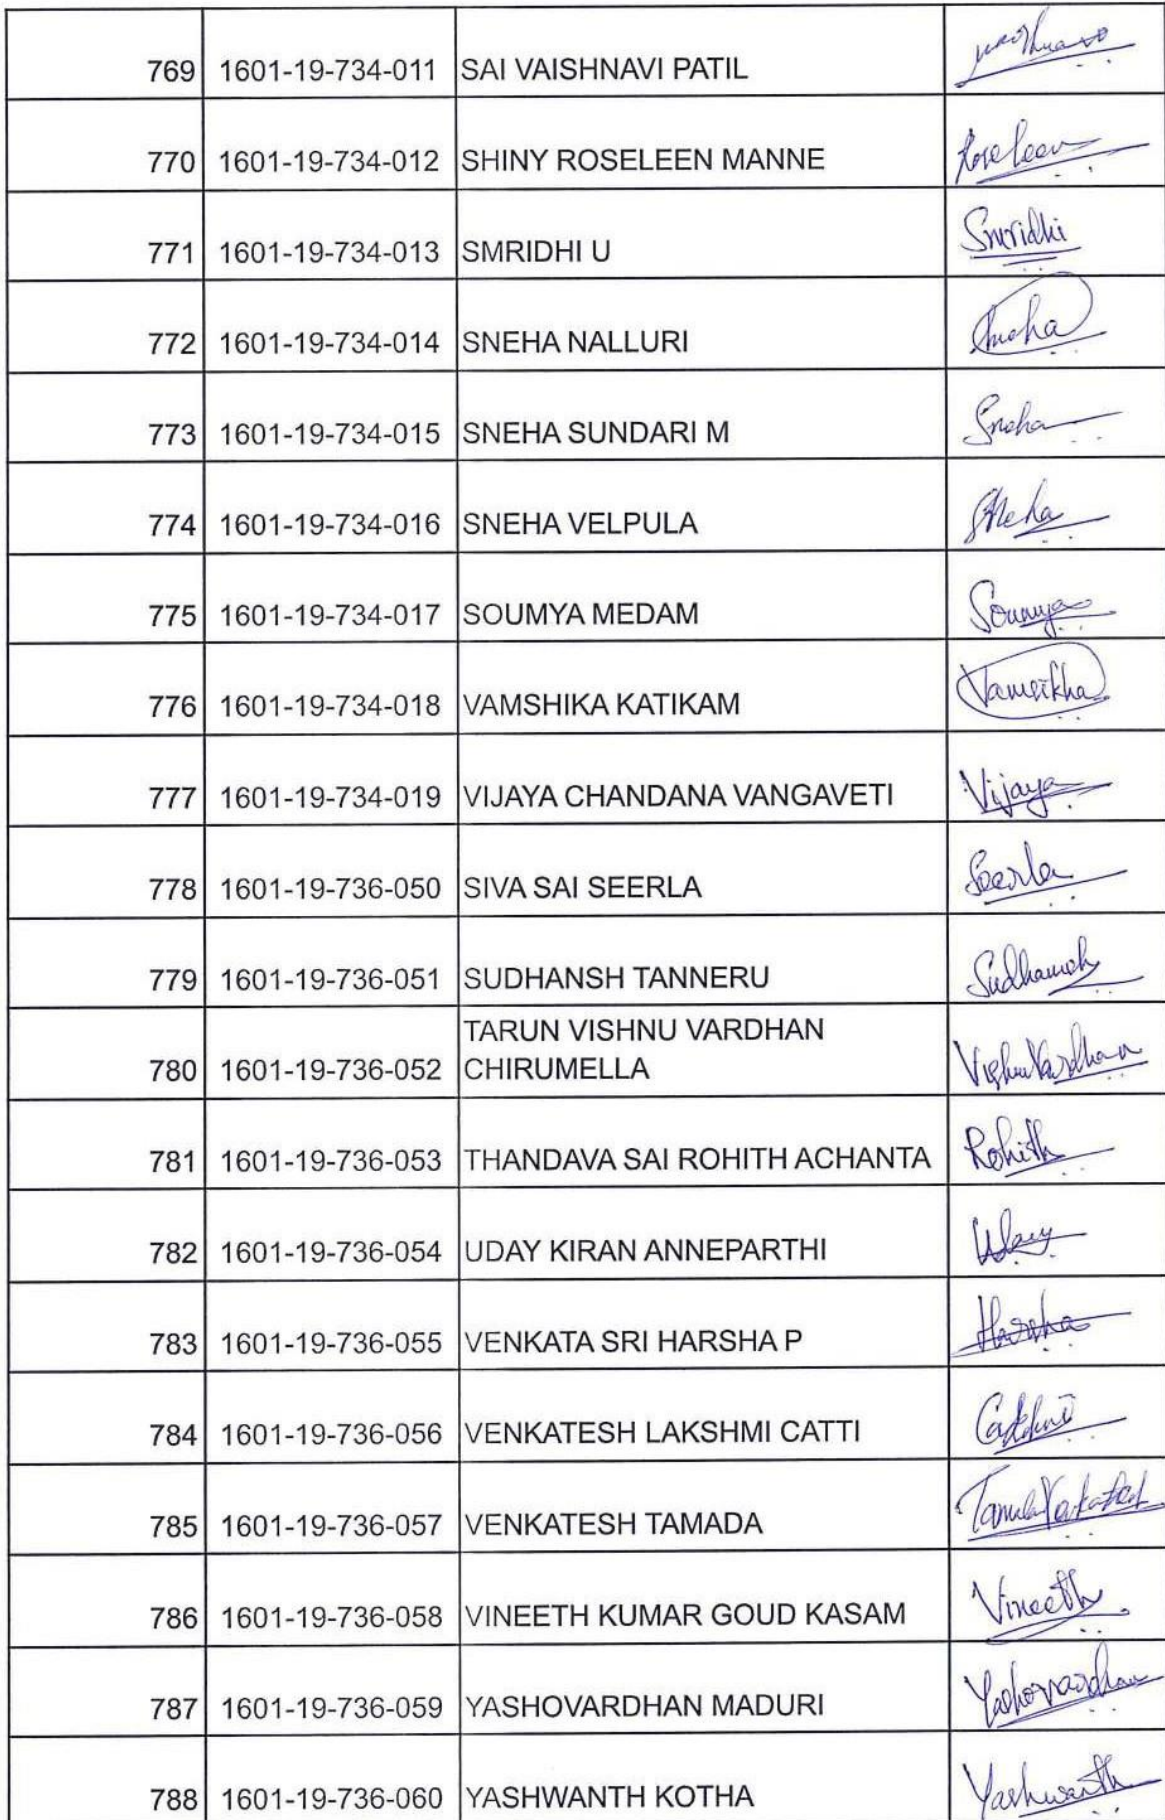 769 1601-19-734-011 SAI VAISHNAVI PATIL
770 1601-19-734-012 SHINY ROSELEEN MANNE Roseleen
771 1601-19-734-013 SMRIDHI U Smridhi
772 1601-19-734-014 SNEHA NALLURI Sneha
773 1601-19-734-015 SNEHA SUNDARI M Sneha
774 1601-19-734-016 SNEHA VELPULA Sneha
775 1601-19-734-017 SOUMYA MEDAM Soumya
776 1601-19-734-018 VAMSHIKA KATIKAM
777 1601-19-734-019 VIJAYA CHANDANA VANGAVETI Vijaya
778 1601-19-736-050 SIVA SAI SEERLA Seerla
779 1601-19-736-051 SUDHANSH TANNERU Sudhansh
TARUN VISHNU VARDHAN
780 1601-19-736-052 CHIRUMELLA VishnuVardhan
781 1601-19-736-053 THANDAVA SAI ROHITH ACHANTA Rohith
782 1601-19-736-054 UDAY KIRAN ANNEPARTHI Uday
783 1601-19-736-055 VENKATA SRI HARSHA P Harsha
784 1601-19-736-056 VENKATESH LAKSHMI CATTI
785 1601-19-736-057 VENKATESH TAMADA
786 1601-19-736-058 VINEETH KUMAR GOUD KASAM Vineeth
787 1601-19-736-059 YASHOVARDHAN MADURI Yashovardhan
788 1601-19-736-060 YASHWANTH KOTHA Yashwanth